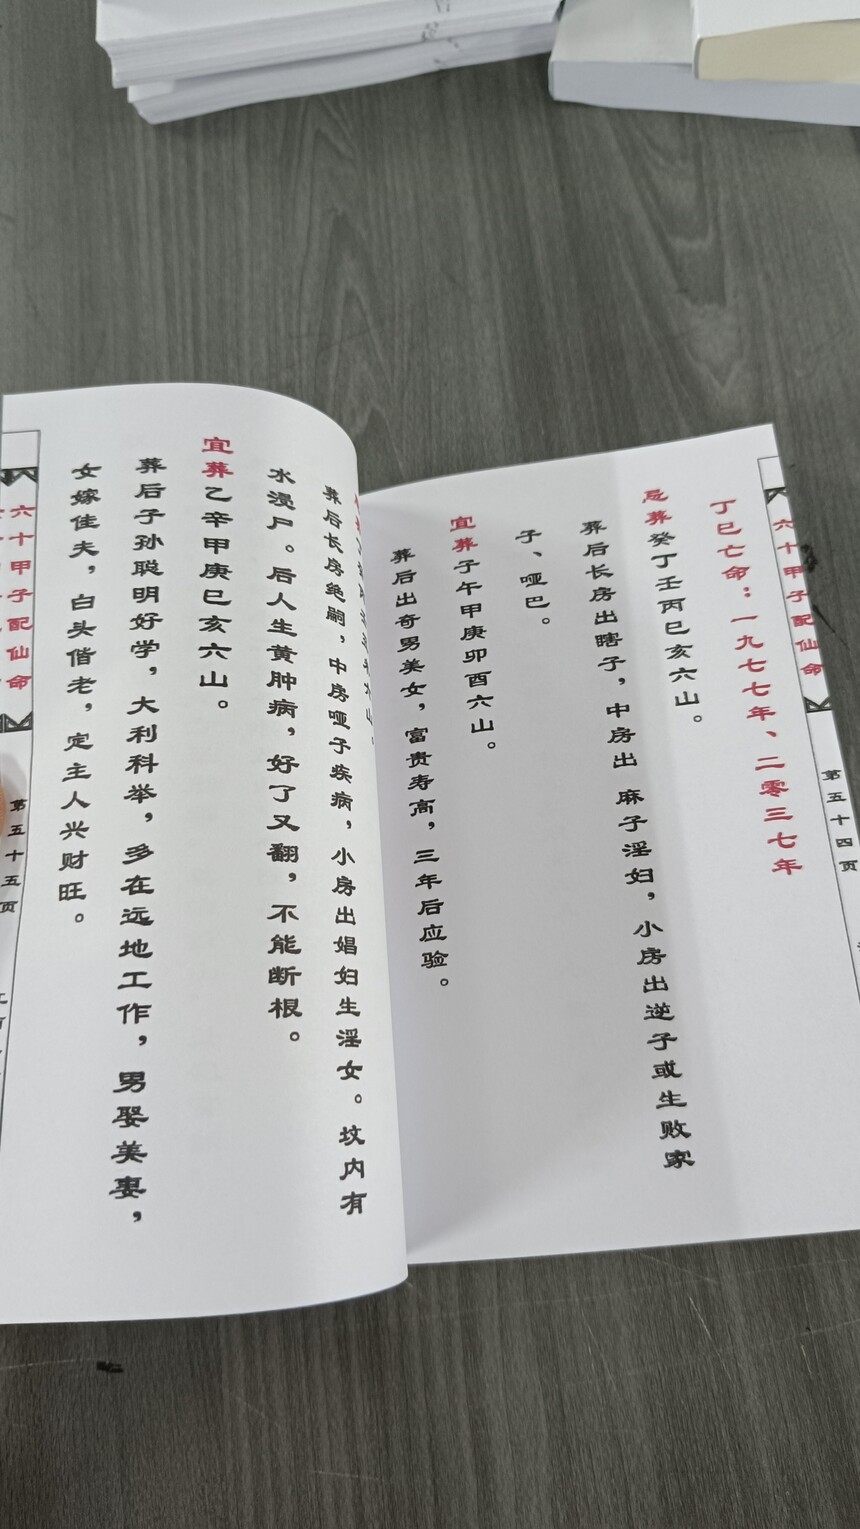 六十甲子配仙命
第五十四页
丁巳亡命：一九七七年、二零三七年
忌葬癸丁壬丙巳亥六山。
葬后长房出瞎子，中房出 麻子淫妇，小房出逆子或生败家
子、哑巴。
宜葬子午甲庚卯酉六山。
葬后出奇男美女，富贵寿高，三年后应验。
葬后长房绝嗣，中房哑子疾病，小房出娼妇生淫女。坟内有
水浸尸。后人生黄肿病，好了又翻，不能断根。
宜葬乙辛甲庚巳亥六山。
葬后子孙聪明好学，大利科举，多在远地工作，男娶美妻，
女嫁佳夫，白头偕老，定主人兴财旺。
六十甲子配仙命
第五十五页